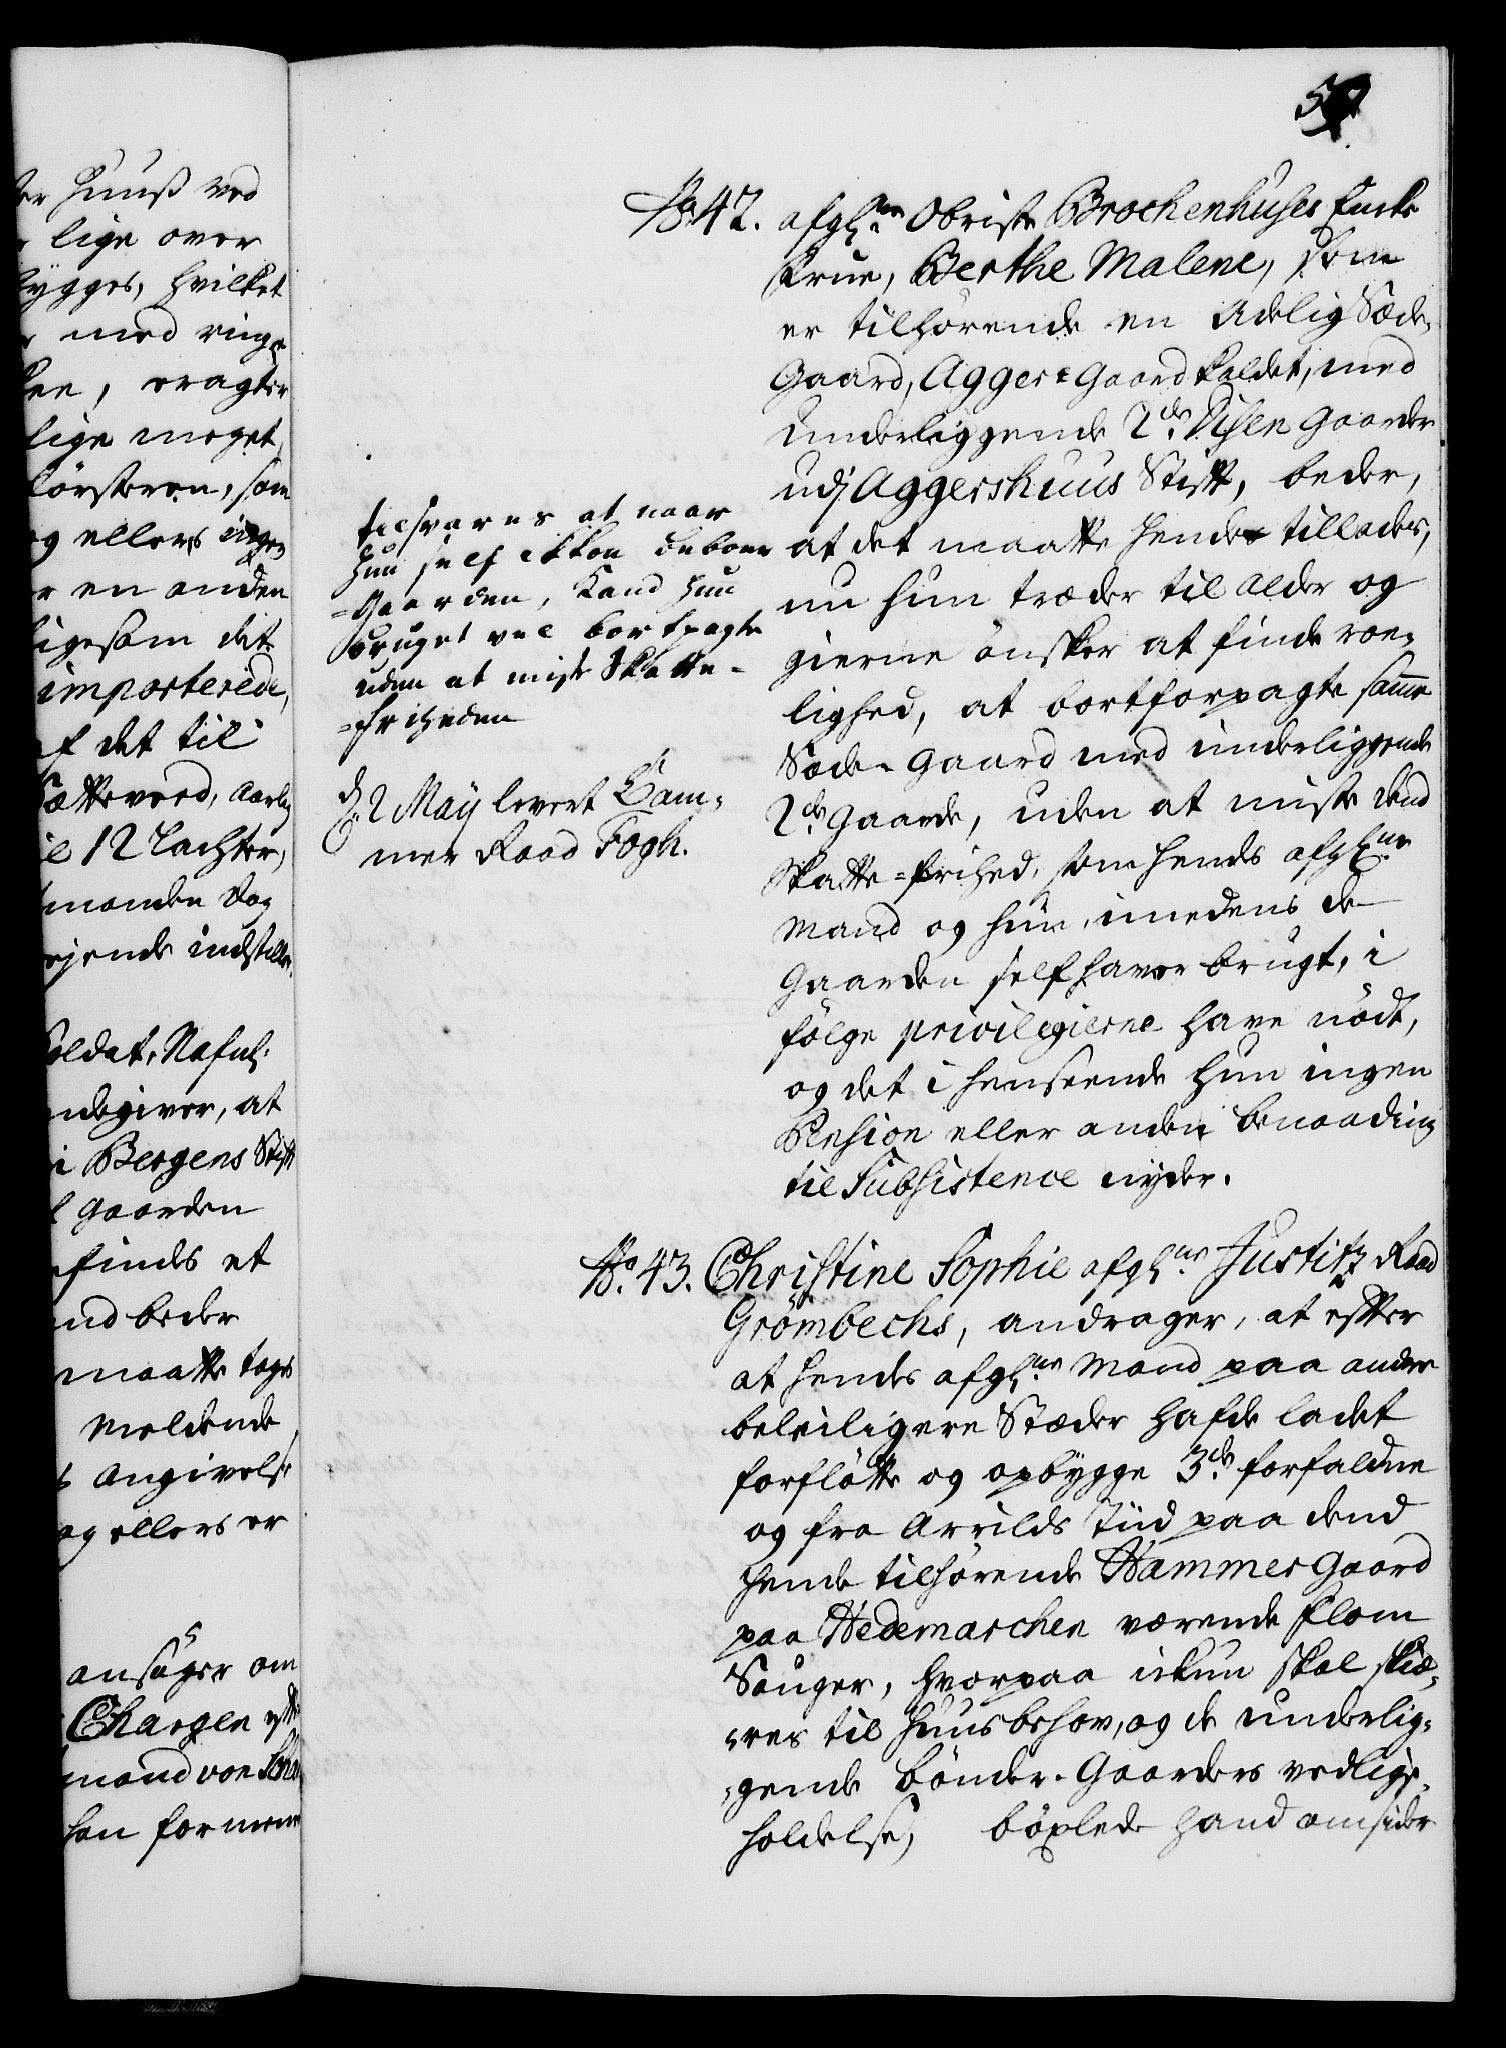 57.
No. 42. afg:ne Obriste Brochenhuses Encke
Frue, Berthe Malene, som
er tilhörende en Adelig Sæde-
Gaard, Aggers Gaard kaldet, med
underliggende 2de Gaarder
udj Aggershuus Stift, beder,
at det maatte hende tillades,
nu hun træder til alder og
gierne önsker at finde roe-
lighed, at bortforpagte samme
Sæde-Gaard med underliggende
2de Gaarde, uden at miste dend
Skatte-frihed, som hends afg:ne
Mand og hun, imedens de
Gaarden self haver brugt, i
fölge privilegierne have nödt,
og det i henseende hun ingen
Pension eller anden benaading
til Subsistence nyder.
tilsvares at naar
hun self ikke beboer
-Gaarden, kand hun
bruget vel bortpagte
uden at miste Skatte-
-friheden
d. 2 Maÿ levert Cam-
mer Raad Fogh.
No. 43. Christine Sophie afg:ne Justitz Raad
Grömbechs, andrager, at efter
at hends afg:ne Mand paa andre
beleiligere Stæder hafde ladet
forflötte og opbygge 3de forfaldne
og fra Arrilds Tiid paa dend
hende tilhörende Hammer Gaard
paa Hedemarchen værende Flom
Sauger, hvorpaa ickun skal skiæ-
-res til huusbehov, og de underlig-
-gende bönder-Gaarders vedlige-
holdelse, böxlede hand omsider
er huuß ved
lige over
bygges, hvilket
med ringe
, eragter
lige meget
försteren, som
og ellers ingen
r en anden
ligesom det
importerede,
af det til
Sætteværd, aarlig
il 12 Lachter,
manden dog
ejende indstille.
Soldat, Nafnl:
ndegiver, at
i Bergens Stift
Gaarden
findes et
nd beder
maatte tages
Meldende
Angivelse
og ellers er
ansöger om
Chargen efter
mand von
han formene